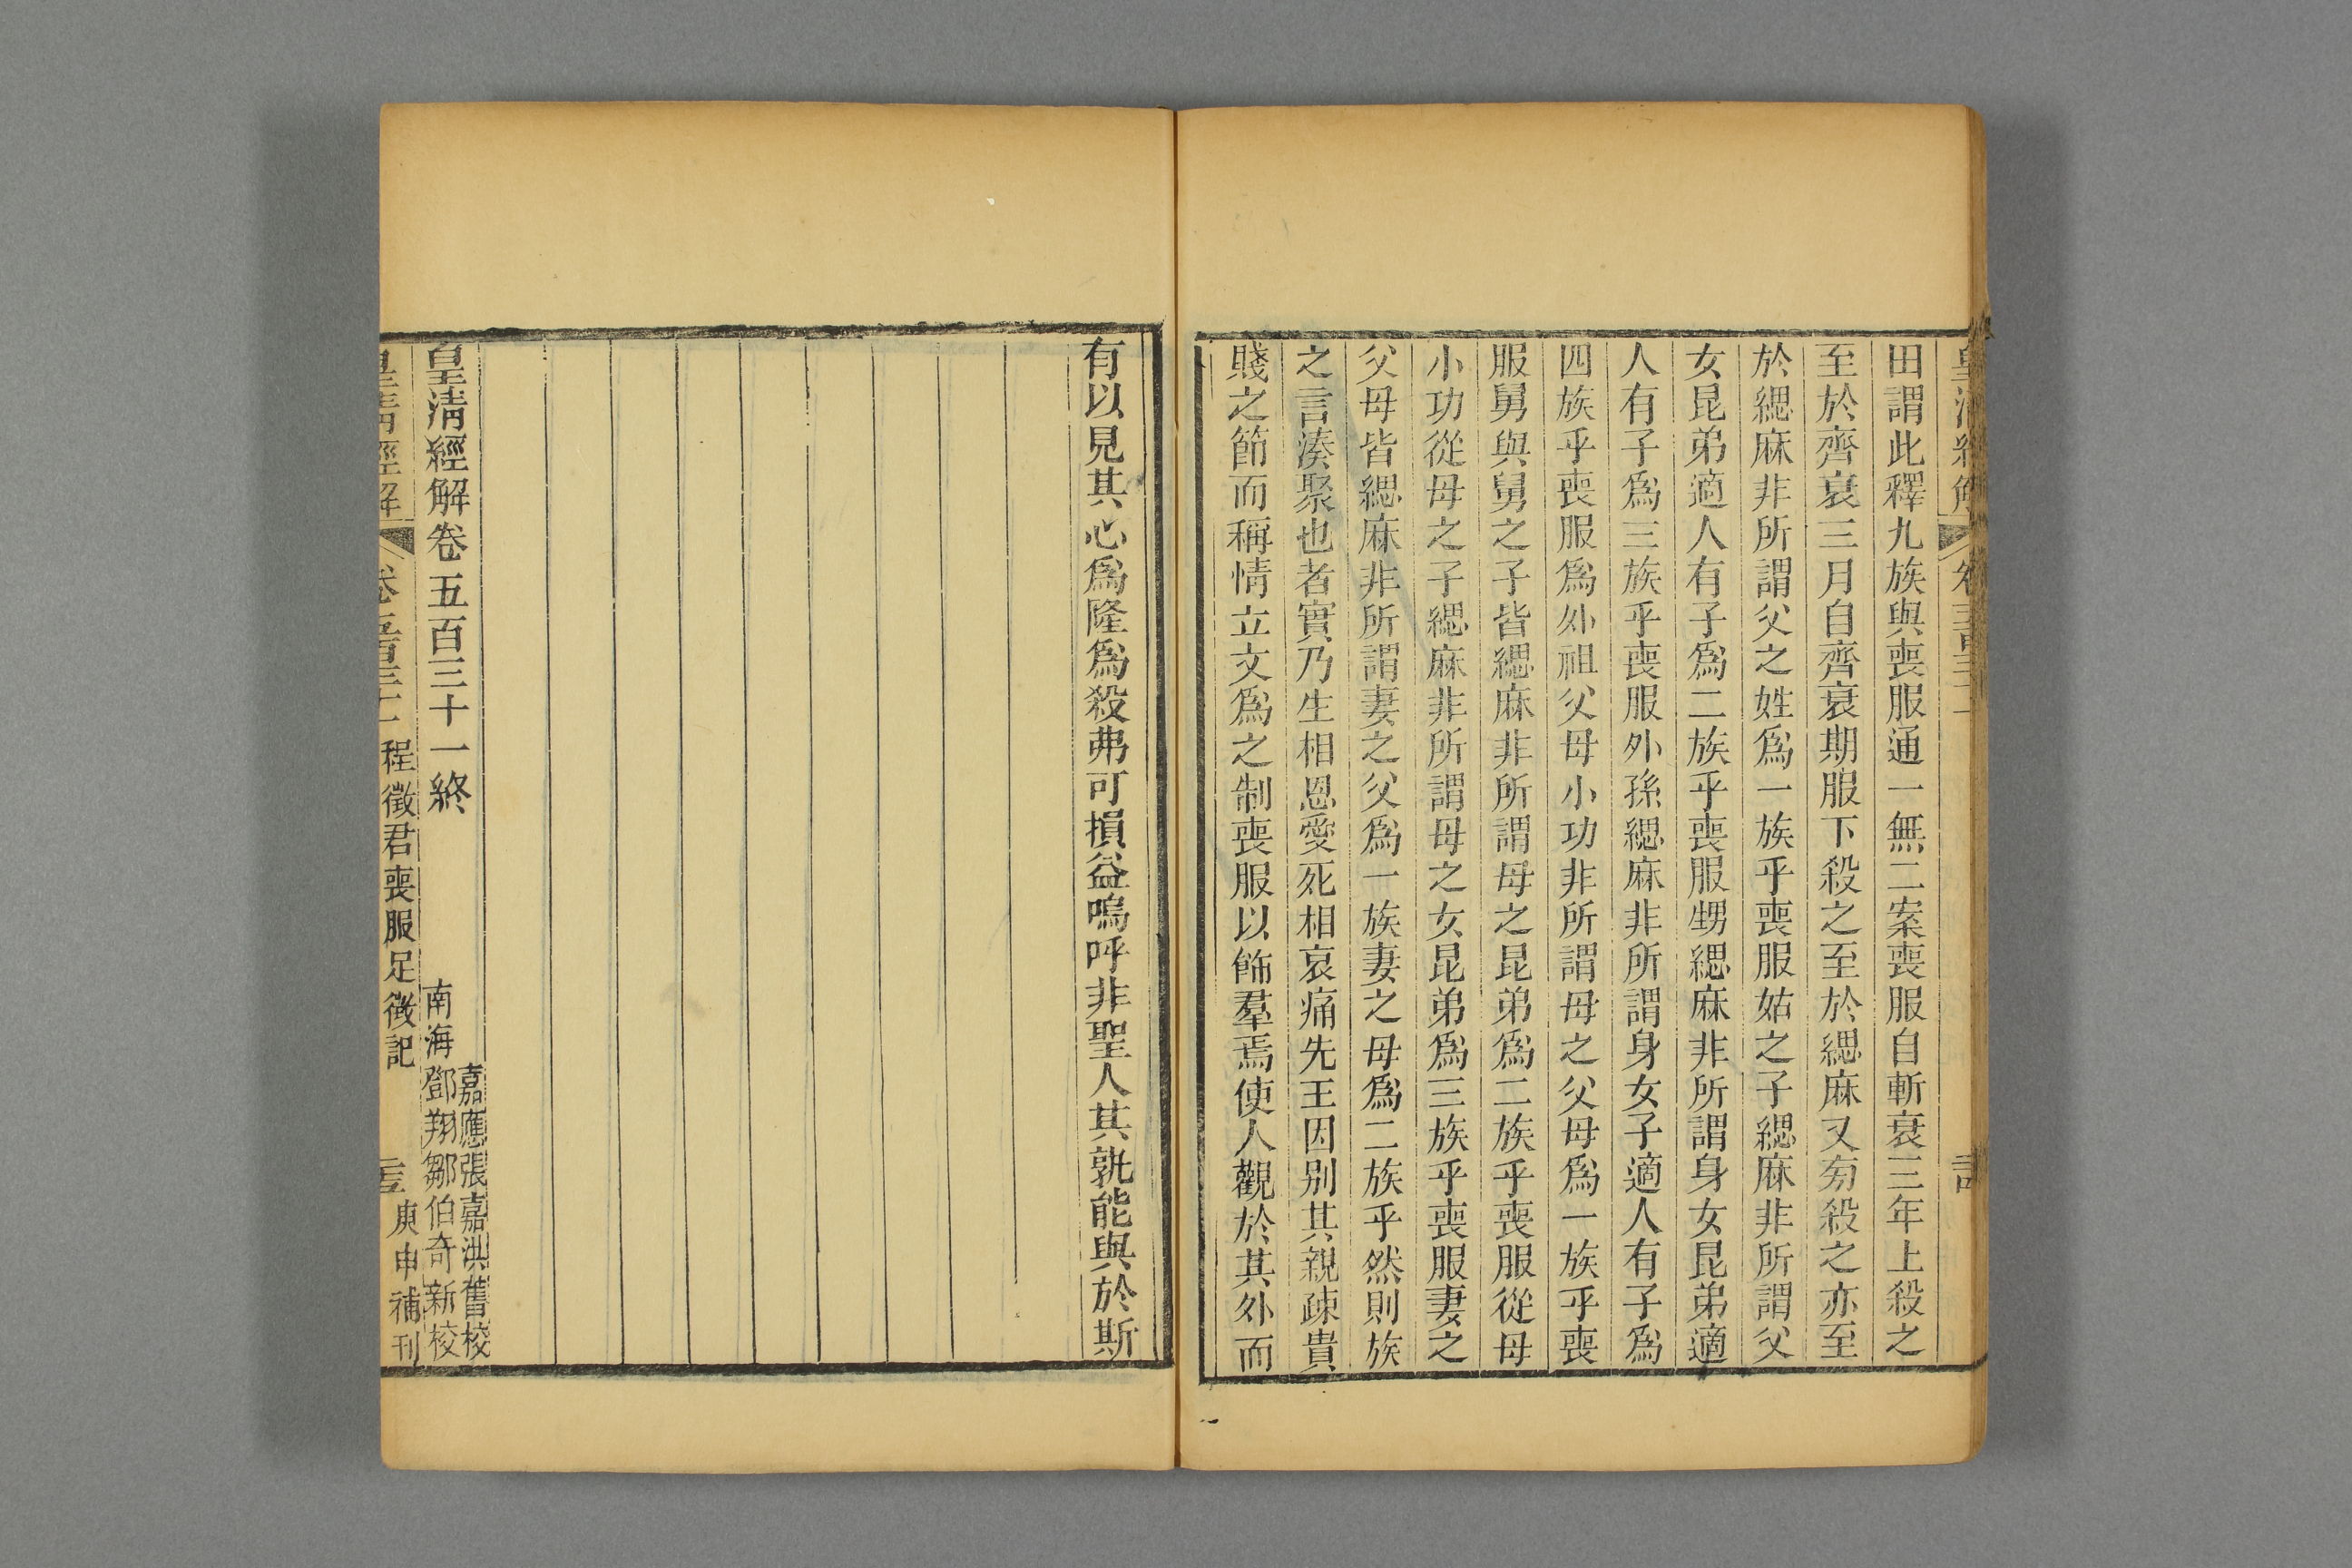 田謂此釋九族與喪服通一無二案喪服自斬衰三年上殺之
至於齊衰三月自齊衰期服下殺之至於緦麻又旁殺之亦至
於緦麻非所謂父之姓爲一族乎喪服姑之子緦麻非所謂父
女昆弟適人有子爲二族乎喪服甥緦麻非所謂身女昆弟適
人有子爲三族乎喪服外孫緦麻非所謂身女子適人有子爲
四族乎喪服爲外祖父母小功非所謂母之父母爲一族乎喪
服舅與舅之子皆緦麻非所謂母之昆弟爲二族乎喪服從母
小功從母之子緦麻非所謂母之女昆弟爲三族乎喪服妻之
父母皆緦麻非所謂妻之父爲一族妻之母爲二族乎然則族
之言湊聚也者實乃生相恩愛死相哀痛先王因别其親疎貴
賤之節而稱情立文爲之制喪服以飾羣焉使人觀於其外而
有以見其心爲隆爲殺弗可損益嗚呼非聖人其孰能與於斯
皇清經解卷五百三十一終
嘉應張嘉洪舊校
南海鄧翔鄒伯奇新校
皇清經解
卷五百三十一程徵君喪服足徵記
庚申補刊